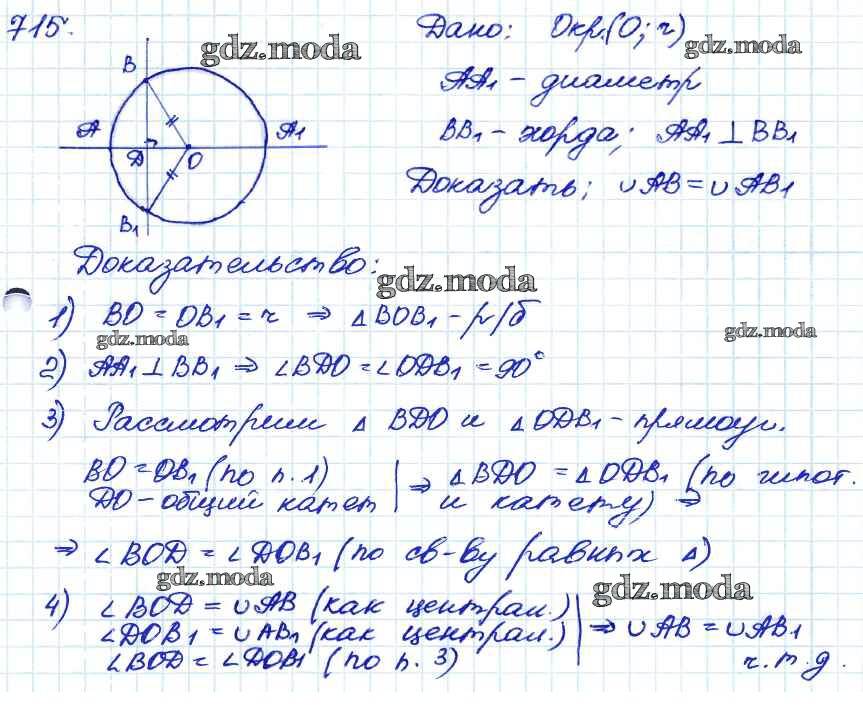 715.
gdz.moda
Дано: Окр.(O; r)
gdz.moda
AA₁ - диаметр
BB₁ - хорда; AA₁ ⊥ BB₁
Доказать; ∪AB = ∪AB₁
B
A
A₁
D
O
B₁
Доказательство:
gdz.moda
1) BO = OB₁ = r ⇒ △BOB₁ - р/б
gdz.moda
gdz.moda
2) AA₁ ⊥ BB₁ ⇒ ∠BDO = ∠ODB₁ = 90°
3) Рассмотрим △ BDO и △ODB₁ - прямоуг.
BO = OB₁ (по п. 1)
DO - общий катет
⇒ △BDO = △ODB₁ (по гипот.
и катету) ⇒
⇒ ∠BOD = ∠DOB₁ (по св-ву равных △)
gdz.moda
gdz.moda
4) ∠BOD = ∪AB (как централ.)
∠DOB₁ = ∪AB₁ (как централ.)
∠BOD = ∠DOB₁ (по п. 3)
⇒ ∪AB = ∪AB₁
ч.т.д.